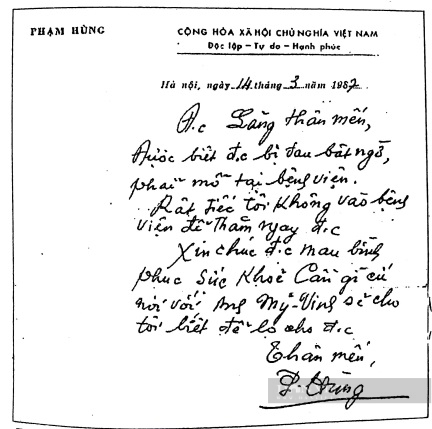 PHẠM HÙNG
CỘNG HÒA XÃ HỘI CHỦ NGHĨA VIỆT NAM
Độc lập – Tự do – Hạnh phúc
Hà nội, ngày 14 tháng 3 năm 1987
Đ.c Lăng thân mến,
Được biết đ.c bị đau bất ngờ,
phải mổ tại bệnh viện.
Rất tiếc tôi không vào bệnh
viện để thăm ngay đ.c
Xin chúc đ.c mau bình
phục sức khoẻ Cần gì cứ
nói với Mỹ-Vinh sẽ cho
tôi biết để lo cho đ.c
Thân mến,
P. Hùng